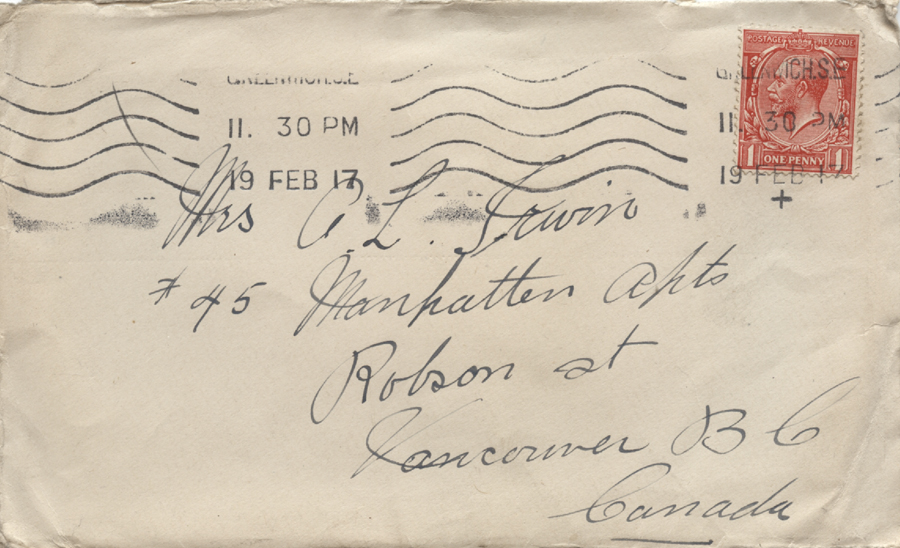 GREENWICH.S.E
11. 30 PM
19 FEB 17
GREENWICH.S.E
11. 30 PM
19 FEB 17
+
POSTAGE REVENUE
1 ONE PENNY 1
Mrs C. L. Irwin
# 45 Manhatten Apts
Robson st
Vancouver B C
Canada